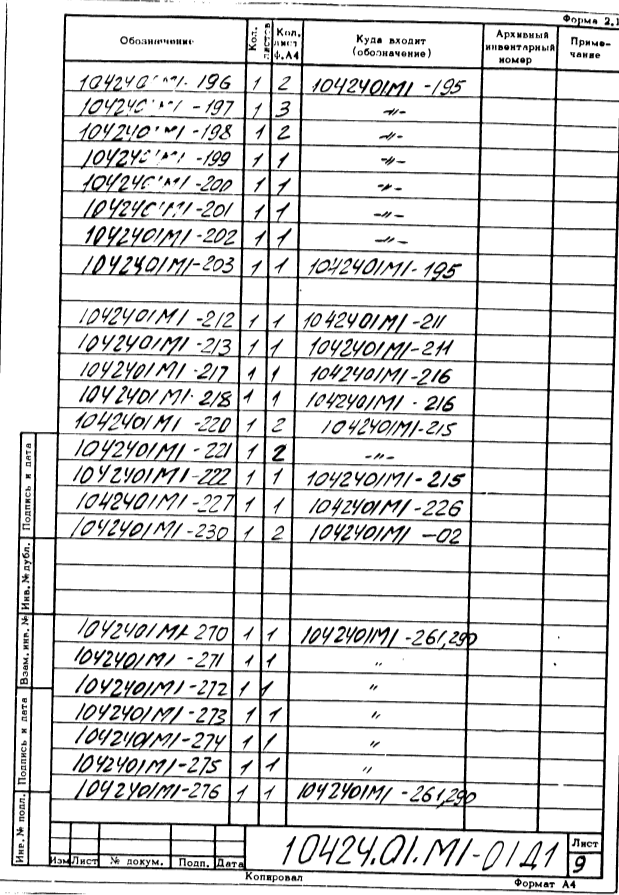 Форма 2.1
Обозначение Кол. листов Кол. лист ф.А4 Куда входит (обозначение) Архивный инвентарный номер Приме-чание
1042401М1-196 1 2 1042401М1-195
1042401М1-197 1 3 -"-
1042401М1-198 1 2 -"-
1042401М1-199 1 1 -"-
1042401М1-200 1 1 -"-
1042401М1-201 1 1 -"-
1042401М1-202 1 1 -"-
1042401М1-203 1 1 1042401М1-195
1042401М1-212 1 1 1042401М1-211
1042401М1-213 1 1 1042401М1-211
1042401М1-217 1 1 1042401М1-216
1042401М1-218 1 1 1042401М1-216
1042401М1-220 1 2 1042401М1-215
1042401М1-221 1 2 -"-
1042401М1-222 1 1 1042401М1-215
1042401М1-227 1 1 1042401М1-226
1042401М1-230 1 2 1042401М1-02
1042401М1-270 1 1 1042401М1-261,290
1042401М1-271 1 1 "
1042401М1-272 1 1 "
1042401М1-273 1 1 "
1042401М1-274 1 1 "
1042401М1-275 1 1 "
1042401М1-276 1 1 1042401М1-261,290
Подпись и дата
Инв. № дубл.
Взам. инв. №
Подпись и дата
Инв. № подл.
Изм Лист № докум. Подп. Дата
10424.01.М1-01Д1
Лист
9
Копировал
Формат А4